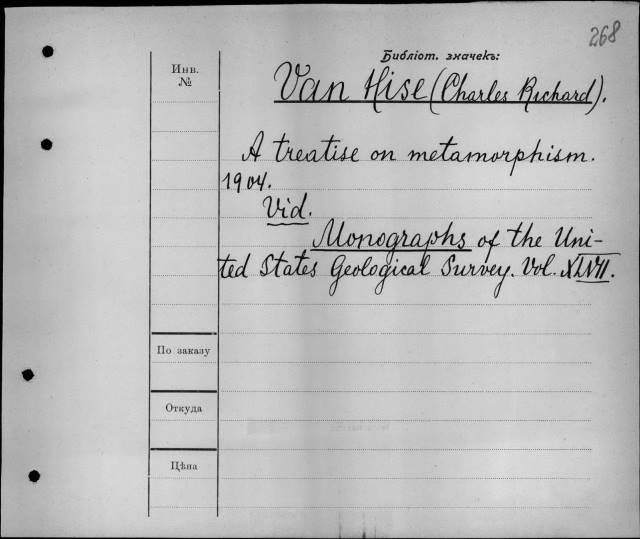 268
Библіот. значекъ:
Инв.
№
Van Hise (Charles Richard).
A treatise on metamorphism.
1904.
Vid.
Monographs of the Uni-
ted States Geological Survey. Vol. XLVII.
По заказу
Откуда
Цѣна